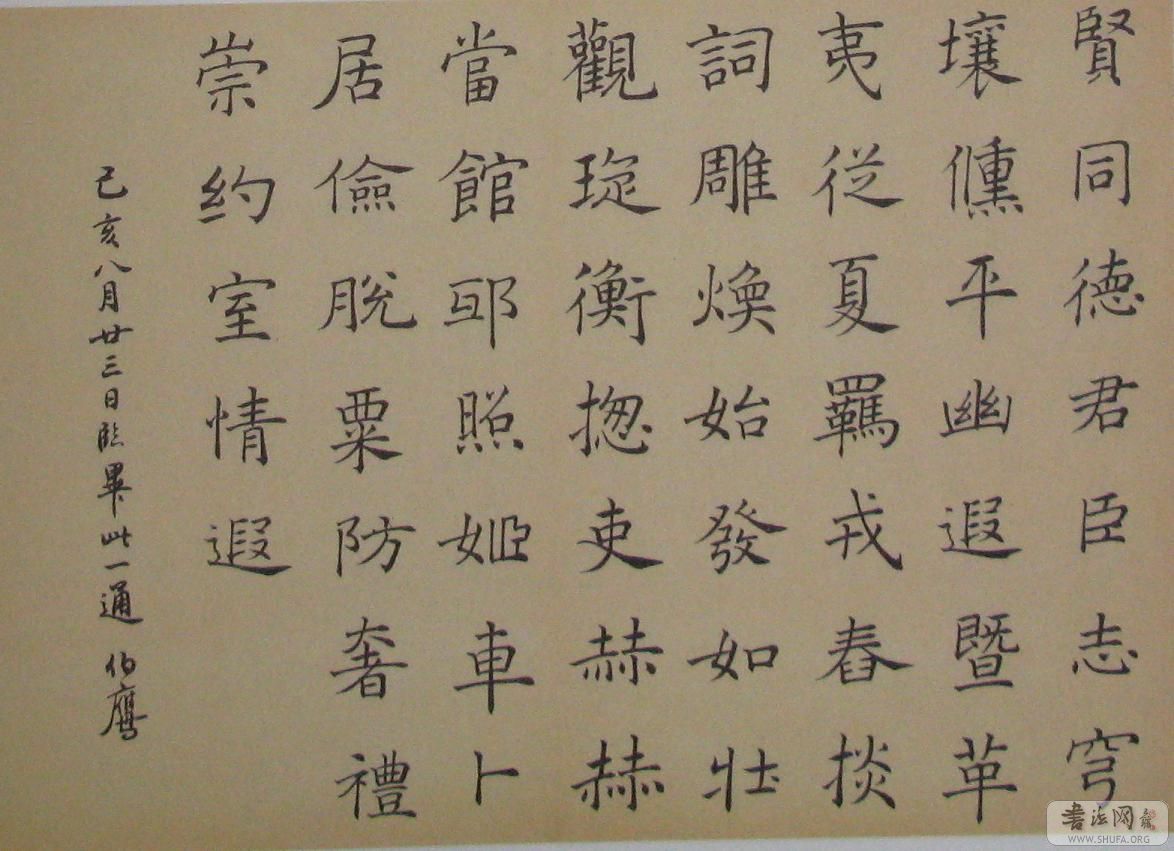 賢同德君臣志穹
壤儓平幽遐暨革
夷從夏羈戎舂掞
詞雕煥始發如壯
觀琁衡揔吏赫赫
當館邸照姬車卜
居儉脫粟防奢禮
崇約室情遐
己亥八月廿三日臨畢此一通 伯鷹
书法网
WWW.SHUFA.ORG